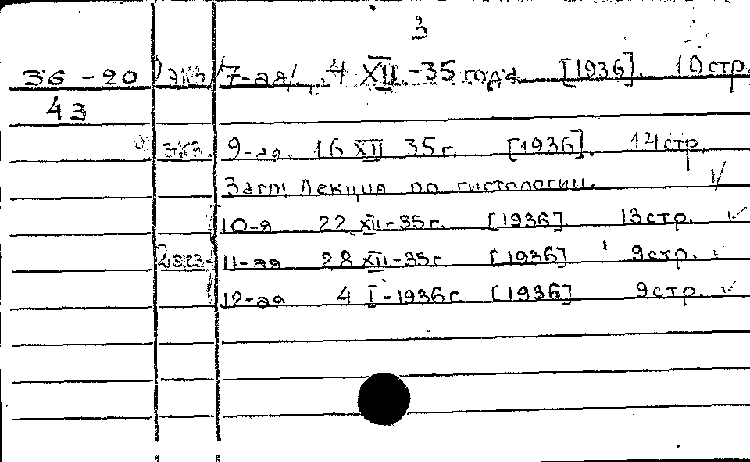 3
36-20 экз. /7-ая/, 4 XII-35 года [1936]. 10 стр.
43
экз. 9-ая. 16 XII 35 г. [1936]. 14 стр.
Загл: Лекция по гистологии. √
10-я 22 XII-35 г. [1936] 13 стр. √
2 экз. 11-ая 28 XII-35 г [1936] 9 стр. √
12-ая 4 I-1936 г. [1936] 9 стр. √